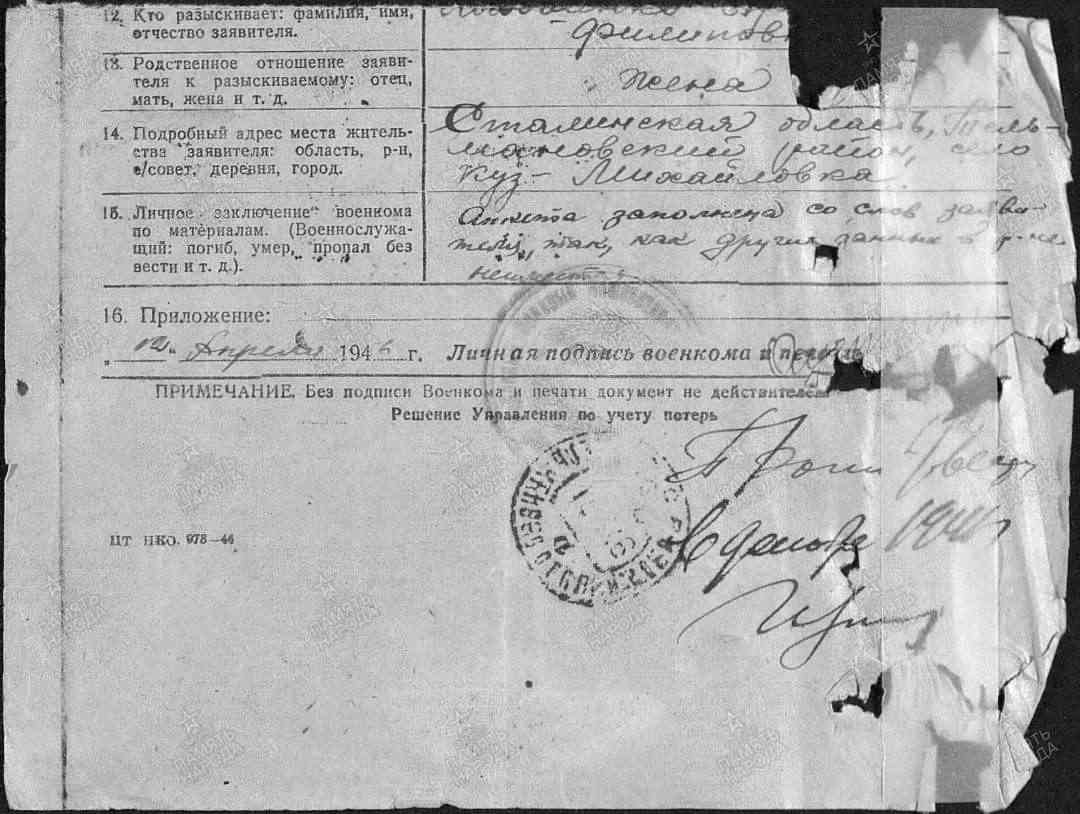 12. Кто разыскивает: фамилия, имя,
отчество заявителя.
Филипов
13. Родственное отношение заяви-
теля к разыскиваемому: отец,
мать, жена и т. д.
жена
14. Подробный адрес места житель-
ства заявителя: область, р-н,
с/совет, деревня, город.
Сталинская область, Тель-
мановский район, село
Куз-Михайловка
15. Личное заключение военкома
по материалам. (Военнослужа-
щий: погиб, умер, пропал без
вести и т. д.).
Анкета заполнена со слов заяви-
теля, так, как других данных в
16. Приложение:
"12" Апреля 1946 г. Личная подпись военкома и печать
ПРИМЕЧАНИЕ. Без подписи Военкома и печати документ не действителен
Решение Управления по учету потерь
1946
ПТ НКО. 978—44
ПАМЯТЬ
НАРОДА